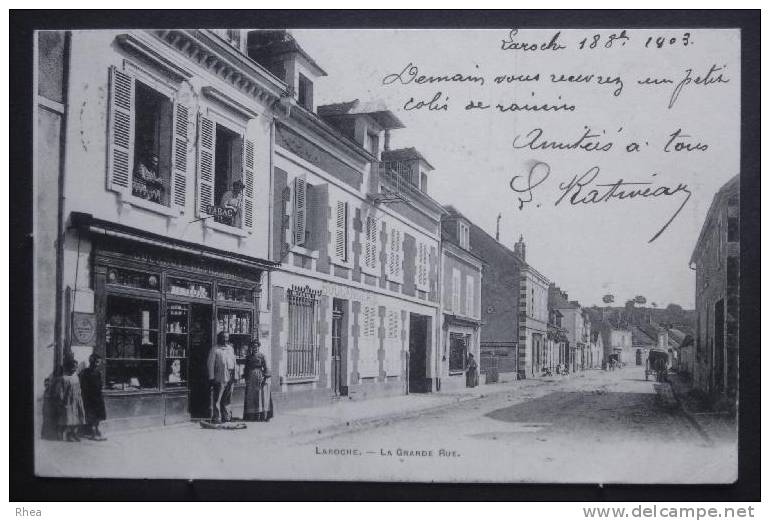 Laroche 188bre 1903.
Demain vous recevrez un petit
colis de raisins
Amitiés à tous
L. Rativeau
TABAC
LAROCHE. — LA GRANDE RUE.
Rhea
http://www.delcampe.net